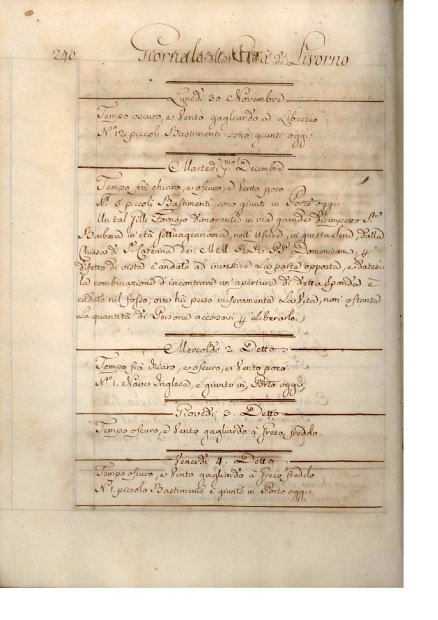 240
Giornale della Città di Livorno
Lunedì 30 Novembre
Tempo oscuro, e Vento gagliardo à Libeccio
N.º 12 piccoli Bastimenti sono giunti oggi
Martedì p.mo Decembre
Tempo frà chiaro, e oscuro, e Vento poco
N.º 6 piccoli Bastimenti sono giunti in Porto oggi
Un tal dimorante in via grande dirimpetto S.ta
Barbera in età settuagennaria, nell'uscire, in questa sera, dalla
Chiesa di S.ta Caterina dei M.M. R.R. P.P. Domenicani, p
difetto di vista è andato ad investire la parte opposta, e datasi
la combinazione d'incontrare un'apertura di detta sponda è
caduto nel fosso, ove hà perso miseramente la Vita, non ostante
la quantità di Persone accorsovi p liberarlo.
Mercoldì 2. Detto
Tempo frà chiaro, e oscuro, e Vento poco
N.º 1. Nave Inglese, è giunto in Porto oggi
Giovedì 3. Detto
Tempo oscuro, e Vento gagliardo à Greco, freddo.
Venerdì 4. Detto
Tempo oscuro, e Vento gagliardo à Greco freddo
N.º 1. piccolo Bastimento è giunto in Porto oggi